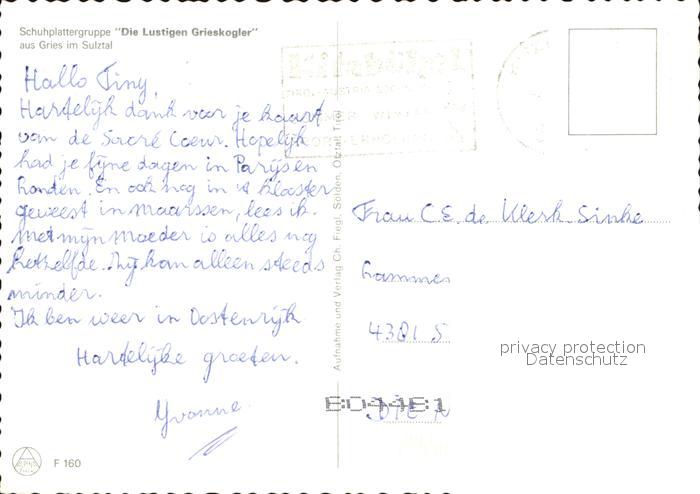 Schuhplattergruppe "Die Lustigen Grieskogler"
aus Gries im Sulztal
Hallo Tiny,
Hartelijk dank voor je kaart
van de Sacré Coeur. Hopelijk
had je fijne dagen in Parijs en
Londen. En ook nog in 't klooster
geweest in Maarssen, lees ik.
Met mijn Moeder is alles nog
hetzelfde. Zij kan alleen steeds
minder.
Ik ben weer in Oostenrijk
Hartelijke groeten.
Yvonne
F 160
Aufnahme und Verlag Ch. Fiegl, Sölden, Ötztal, Tirol
Kitzbühel
Frau C.E. de Klerk-Sinke
4381 S
privacy protection
Datenschutz